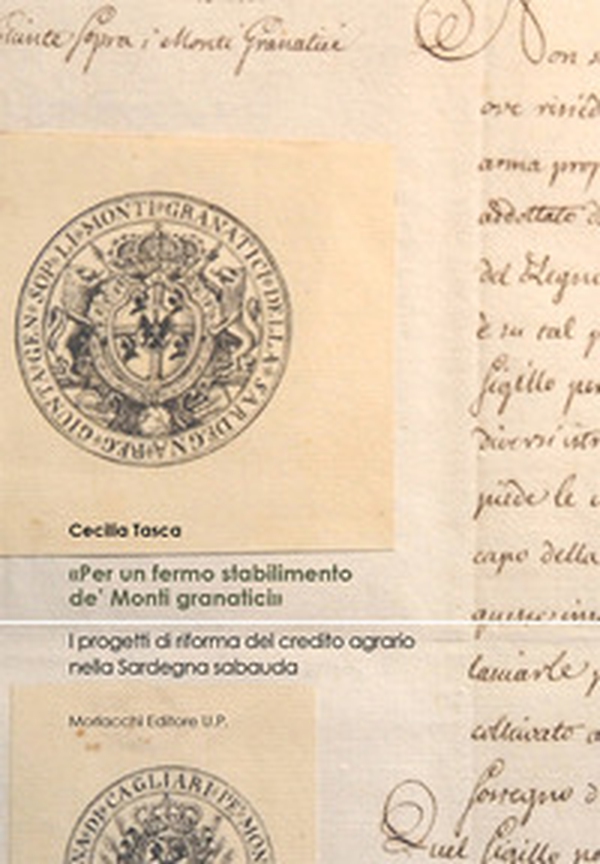 Sopra i Monti Granatici
Non
ove risied
arma prop
addottato d
del Regno
è su tal p
Sigillo per
diversi
piede le
capo della
lasciarle p
coltivato a
Sostegno d
Quel Sigillo
REG. GIUNTA GEN. SOP. LI MONTI GRANATICI DELLA SARDEGNA
Cecilia Tasca
«Per un fermo stabilimento
de' Monti granatici»
I progetti di riforma del credito agrario
nella Sardegna sabauda
Morlacchi Editore U.P.
NA DI CAGLIARI PE' MON